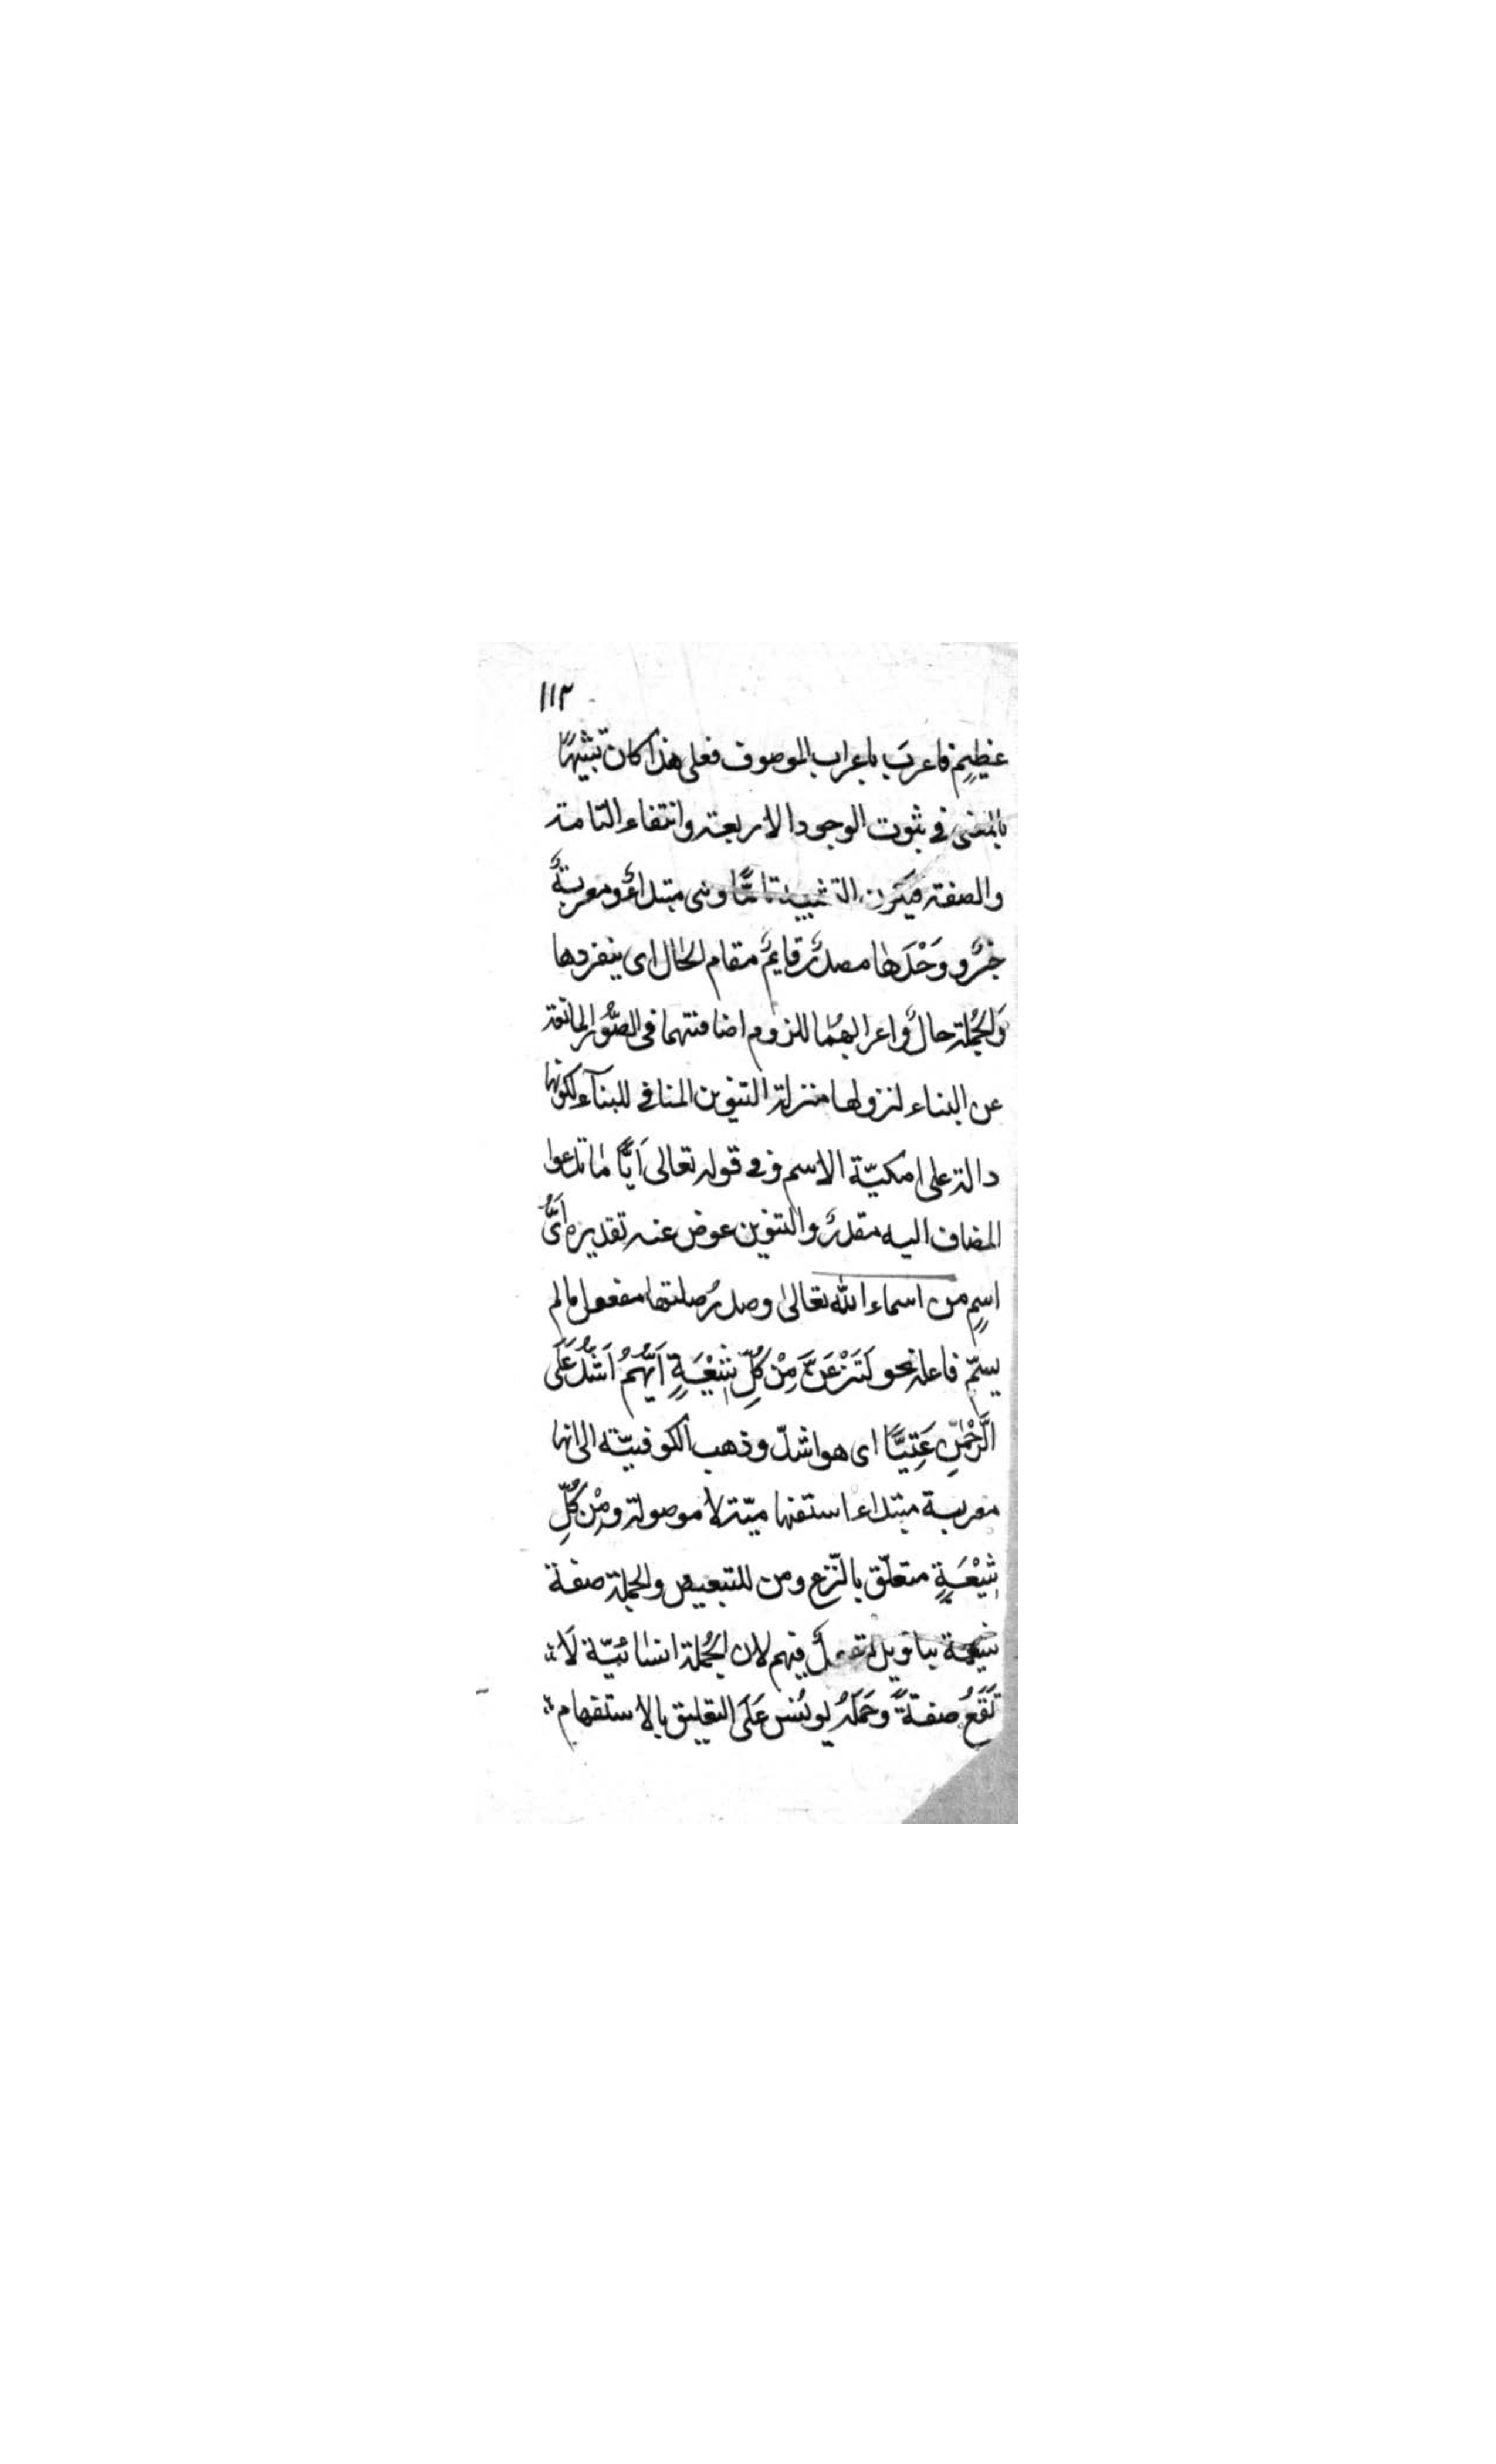 ١١٢
عظيمٍ فاعربَ باعراب الموصوف فعلى هذا كان تشبيهًا
بالمعنى فى ثبوت الوجود الاربعة وانتفاء التامة
والصفة فيكون التشبيه تامًّا وهى مبتداءٌ ومعربةٌ
خبرٌ ووَحْدَهٰا مصدرٌ قايمٌ مقام الحٰال اى ينفردها
وَالجُملة حالٌ واعرابهُمٰا للزوم اضافتهما فى الصُّوَر المانعة
عن البناء لنزولها منزلة التنوين المنافى للبنآء لكونها
دالة على امكنيّة الاسم وفى قوله تعالى اَيًّا مٰا تدعوا
المضاف اليه مقدرٌ والتنوين عوض عنه تقديره اَىُّ
اسمٍ من اسماء الله تعالىٰ وصدرُ صلتها مفعول مالم
يسمّ فاعله نحو لَنَنْزِعَنَّ مِنْ كُلِّ شٖيْعَةٍ اَيُّهُمْ اَشَدُّ عَلَى
الرَّحْمٰنِ عَتِيًّا اى هو اشدّ وذهب الكوفيّة الى انها
معربة مبتداء استفهاميّة لا موصولة ومِنْ كُلِّ
شٖيْعَةٍ متعلّق بالنّزع ومن للتبعيض والجملة صفة
شيعة بتاويل فيهم لان الجُملة انشائيّة لَا
تَقَعُ صفةً وحَمَلَهُ يونُس عَلَى التعليق بالاستفهام